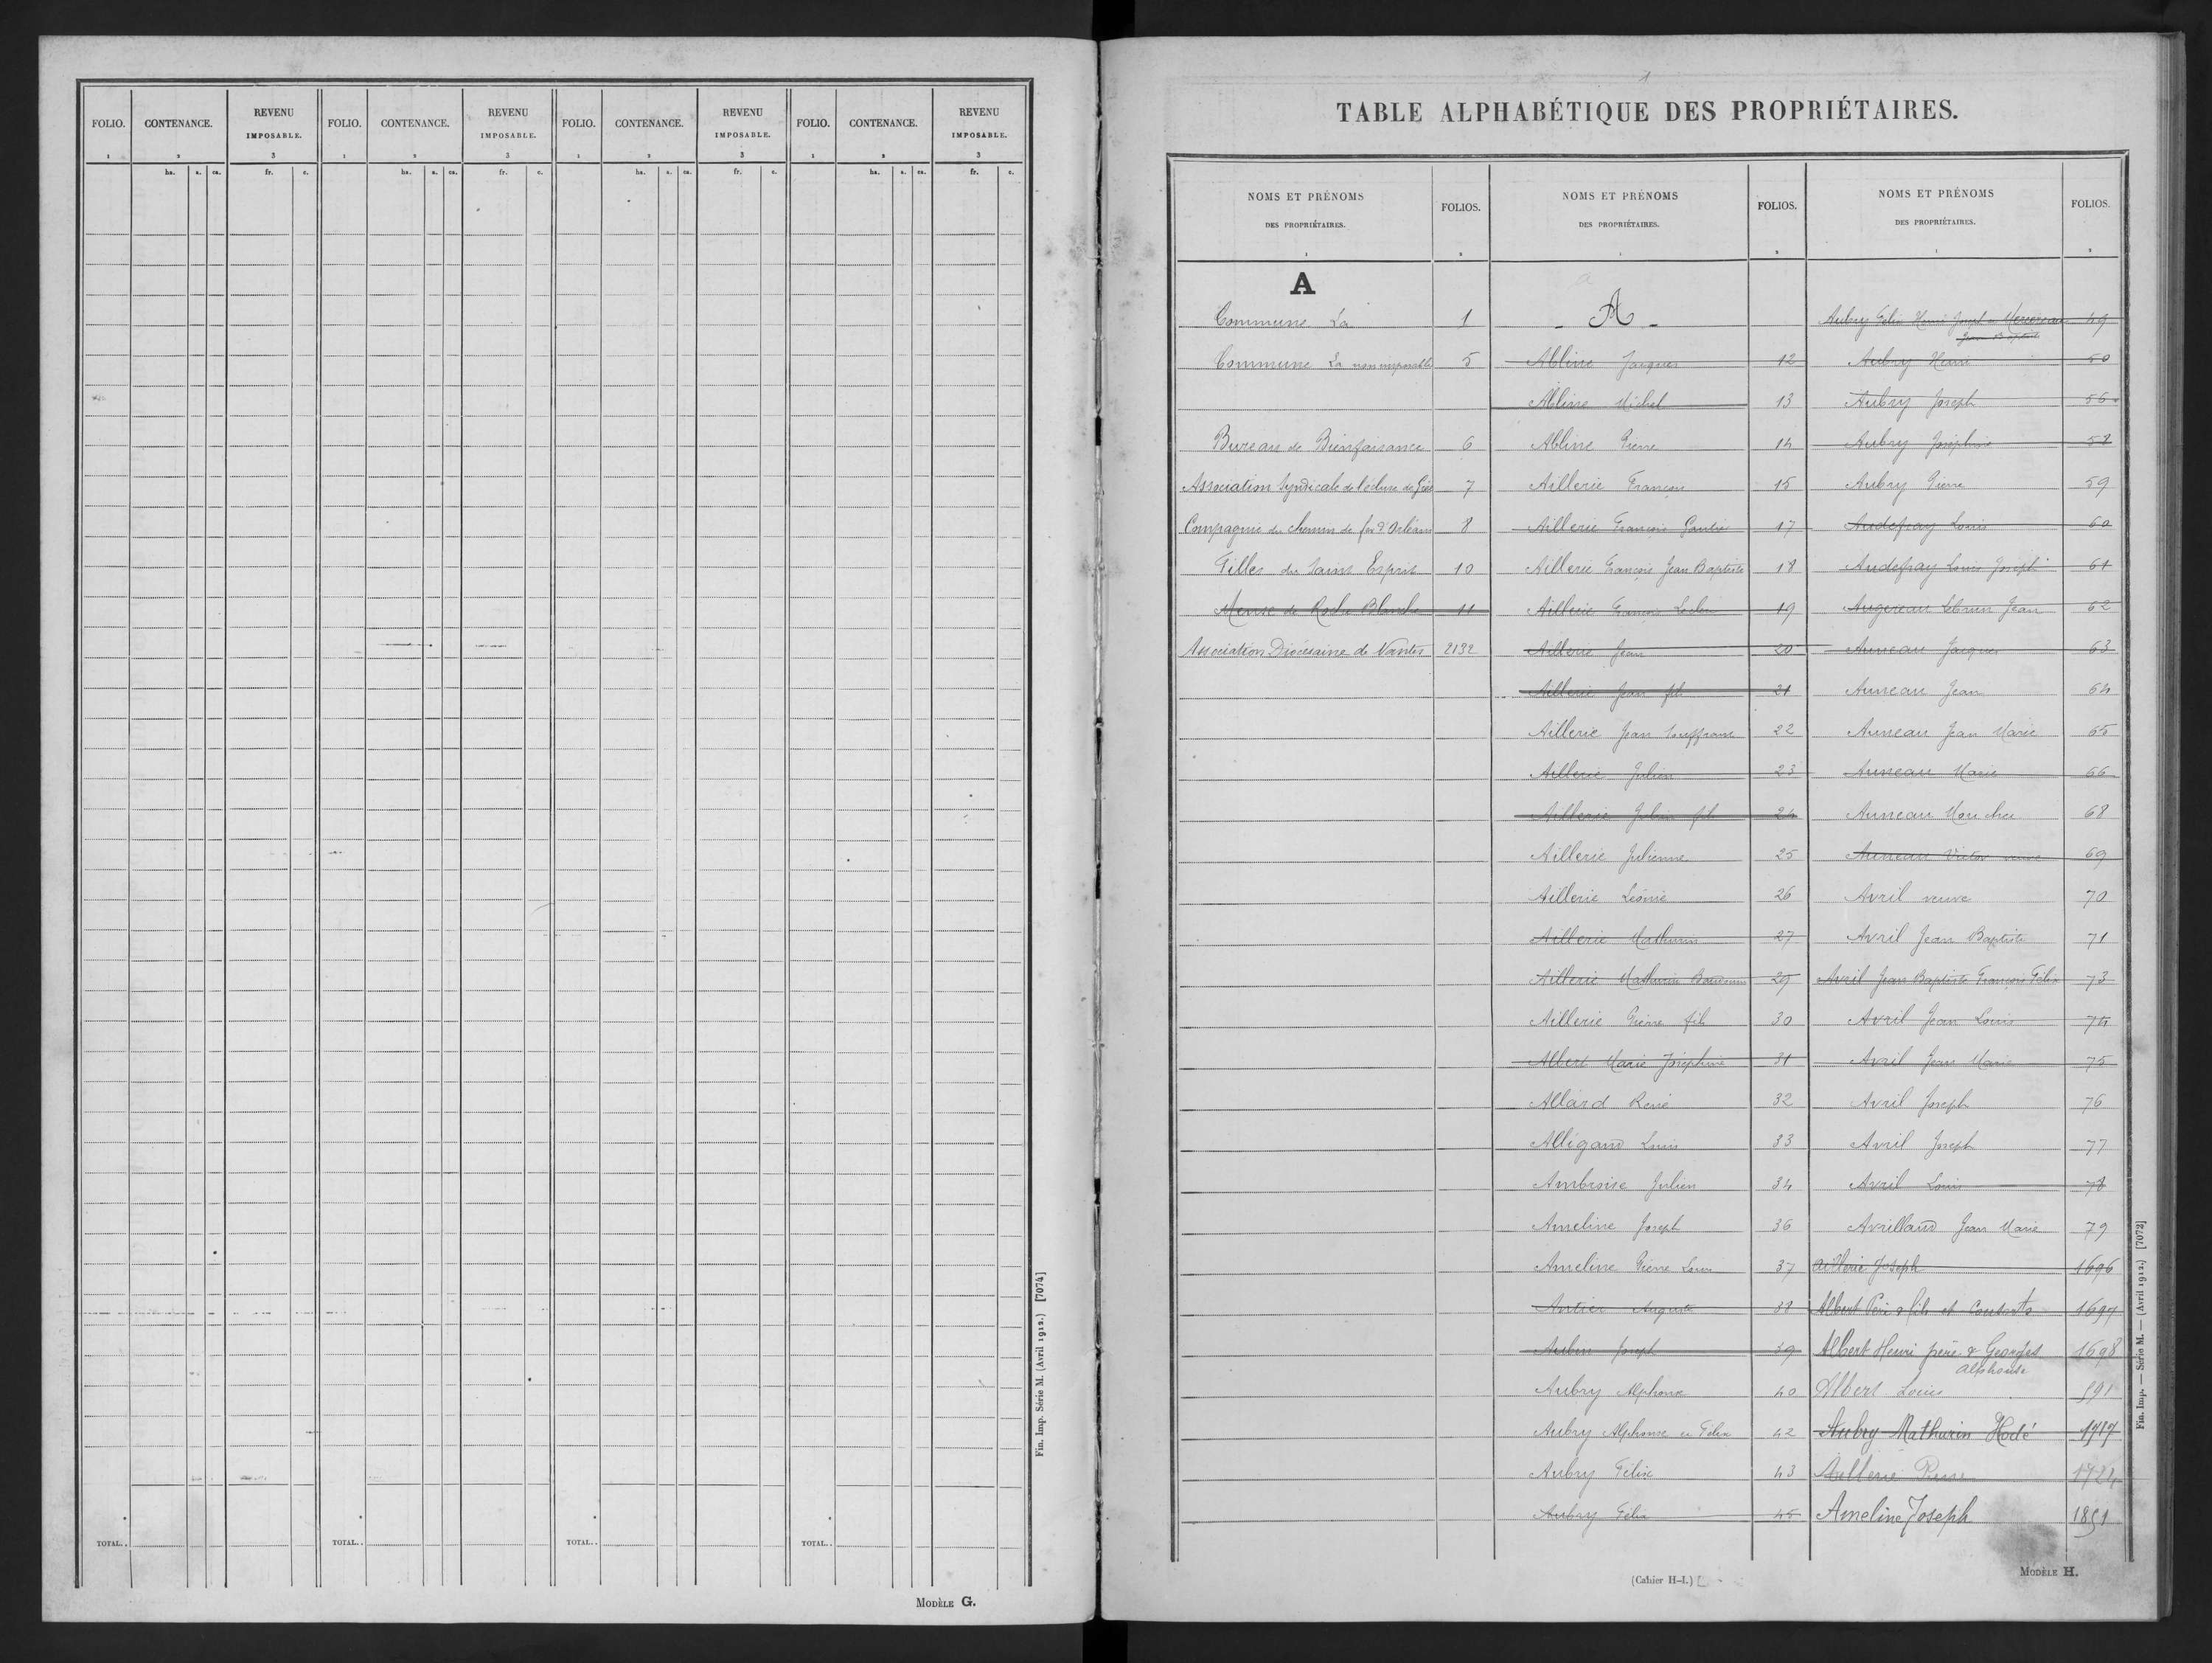 FOLIO. CONTENANCE. REVENU IMPOSABLE. FOLIO. CONTENANCE. REVENU IMPOSABLE. FOLIO. CONTENANCE. REVENU IMPOSABLE. FOLIO. CONTENANCE. REVENU IMPOSABLE.
1 2 3 1 2 3 1 2 3 1 2 3
ha. a. ca. fr. c. ha. a. ca. fr. c. ha. a. ca. fr. c. ha. a. ca. fr. c.
TOTAL.. TOTAL.. TOTAL.. TOTAL..
Fin. Imp. Série M. (Avril 1912.) [7074]
MODÈLE G.
1
TABLE ALPHABÉTIQUE DES PROPRIÉTAIRES.
NOMS ET PRÉNOMS
DES PROPRIÉTAIRES.
FOLIOS.
A
Commune La 1
Commune La non imposable 5
Bureau de Bienfaisance 6
Association Syndicale de l'écluse de 7
Compagnie du chemin de fer d'Orléans 8
Filles du Saint Esprit 10
Mense de Roche Blanche 11
Association Diocésaine de Nantes 2132
NOMS ET PRÉNOMS
DES PROPRIÉTAIRES.
FOLIOS.
- A -
Abline Jacques 12
Abline Michel 13
Abline Pierre 14
Aillerie François 15
Aillerie François Gautié 17
Aillerie François Jean Baptiste 18
Aillerie François 19
Aillerie Jean 20
Aillerie Jean fils 21
Aillerie Jean Souffrane 22
Aillerie Julien 23
Aillerie Julien fils 24
Aillerie Julienne 25
Aillerie Léonie 26
Aillerie Mathurin 27
Aillerie Mathurin 29
Aillerie Pierre fils 30
Albert Marie Joséphine 31
Allard René 32
Alligand Louis 33
Ambroise Julien 34
Ameline Joseph 36
Ameline Pierre Louis 37
Antier Auguste 38
Aubin Joseph 39
Aubry Alphonse 40
Aubry Alphonse et Félix 42
Aubry Félix 43
Aubry Félix 45
NOMS ET PRÉNOMS
DES PROPRIÉTAIRES.
FOLIOS.
Aubry Félix Henri et Mercereau 49
Jean Baptiste
Aubry Henri 50
Aubry Joseph 56
Aubry Joséphine 58
Aubry Pierre 59
Audefray Louis 60
Audefray Louis Joseph 61
Augereau Lebrun Jean 62
Auneau Jacques 63
Auneau Jean 64
Auneau Jean Marie 65
Auneau Marie 66
Auneau 68
Auneau Victor veuve 69
Avril veuve 70
Avril Jean Baptiste 71
Avril Jean Baptiste François Félix 73
Avril Jean Louis 74
Avril Jean Marie 75
Avril Joseph 76
Avril Joseph 77
Avril Louis 78
Avrilland Jean Marie 79
Aillerie Joseph 1696
Albert Père & fils et 1697
Albert Henri père & Georges 1698
Alphonse
Albert Louis 591
Aubry Mathurin Hodé 1717
Aillerie Pierre 1724
Ameline Joseph 1851
Fin. Imp. — Série M. — (Avril 1912.) [7072]
(Cahier H-I.)
MODÈLE H.